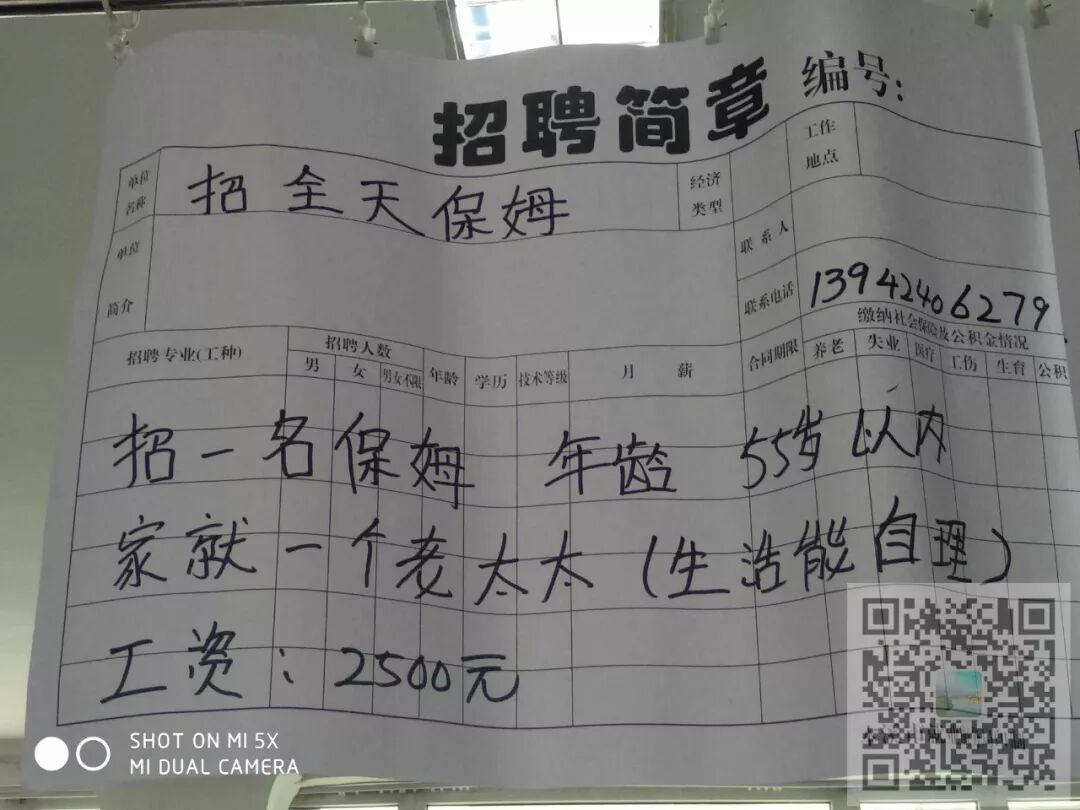 招聘简章 编号:
单位名称 招全天保姆 经济类型 工作地点
单位简介 联系人
联系电话 13942406279
招聘专业(工种) 招聘人数 年龄 学历 技术等级 月薪 合同期限 缴纳社会保险及公积金情况
男 女 男女不限 养老 失业 医疗 工伤 生育 公积
招一名保姆 年龄 55岁以内
家就一个老太太(生活能自理)
工资:2500元
SHOT ON MI 5X
MI DUAL CAMERA